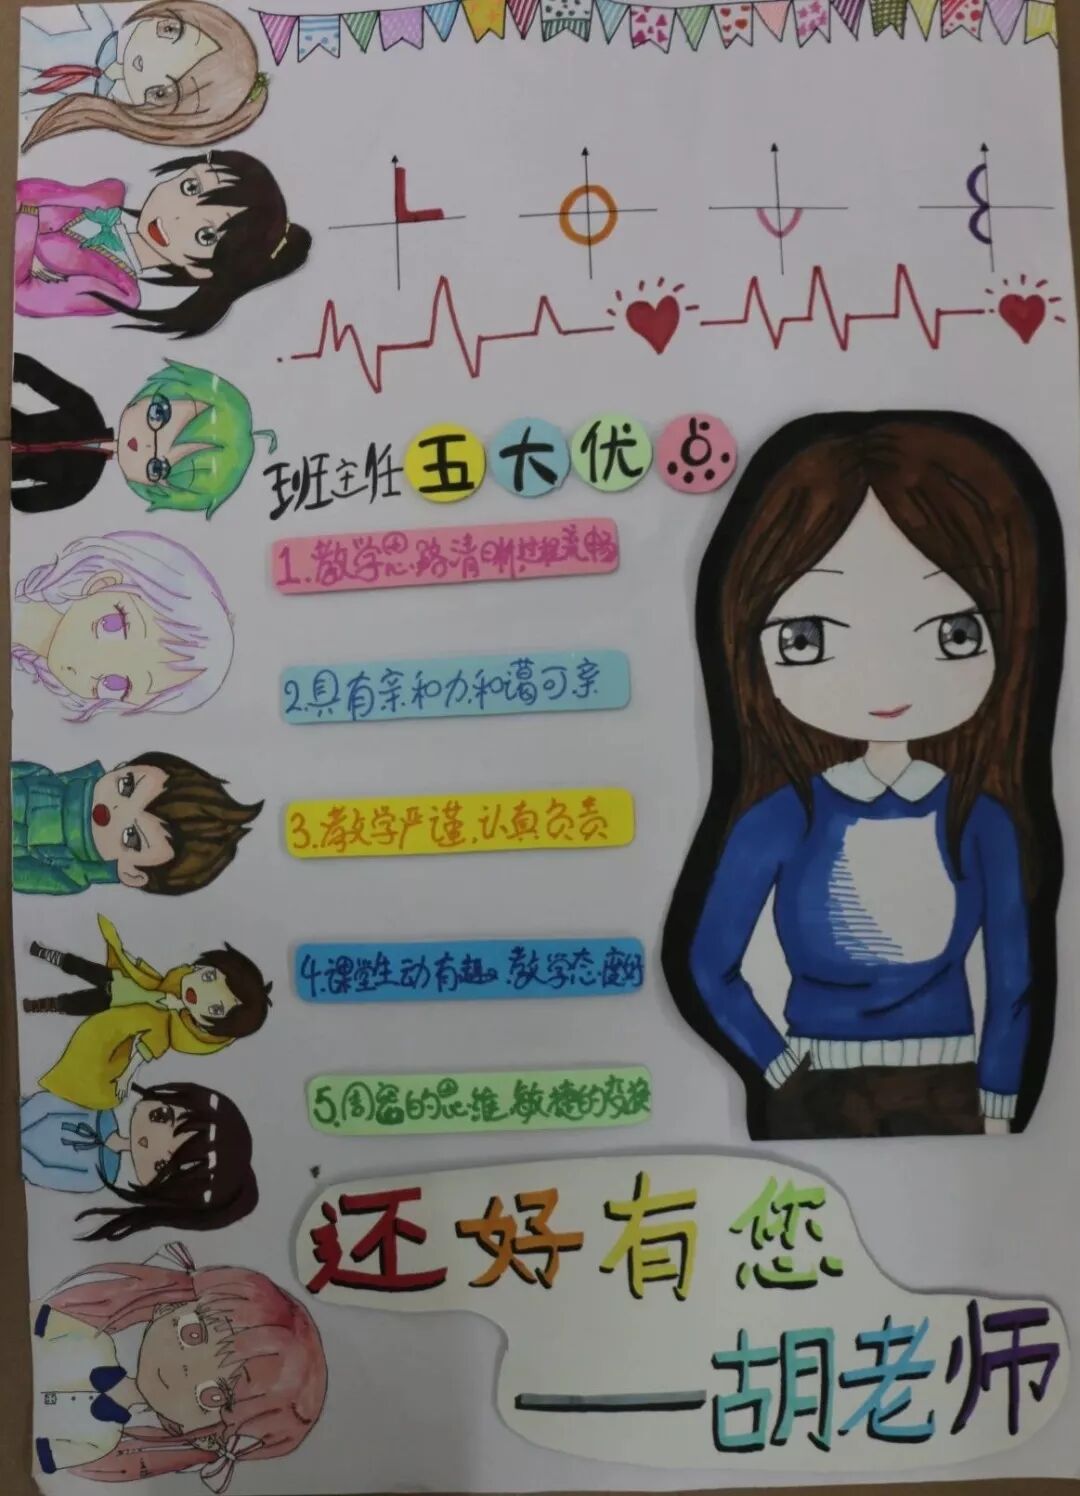 班主任五大优点
1.教学思路清晰,过程流畅
2.具有亲和力和谒可亲
3.教学严谨,认真负责
4.课堂生动有趣,教学态度好
5.周密的思维,敏捷的变换
还好有您
——胡老师